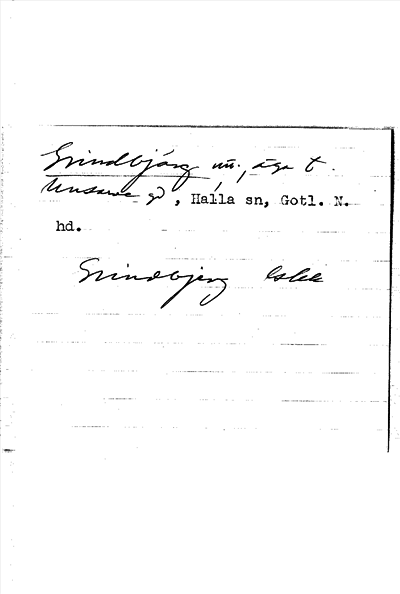 Grindbjärg nu., äga t.
Unsarve gd, Halla sn, Gotl. N.
hd.
Grindbjerg Eslek